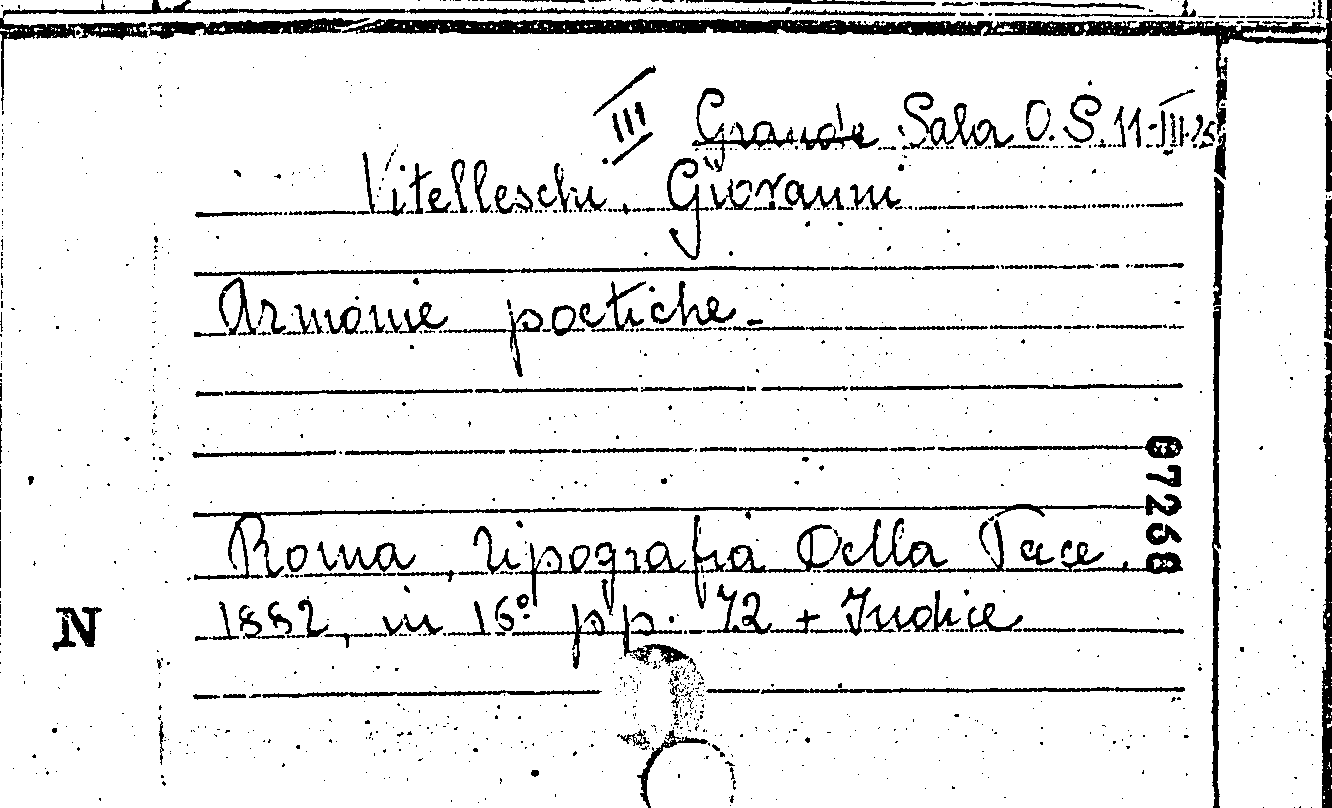 III Grande Sala O.S. 11-III-25
Vitelleschi, Giovanni
Armonie poetiche.
Roma, tipografia Della Pace,
1882, in 16° pp. 72 + Indice
N
07268